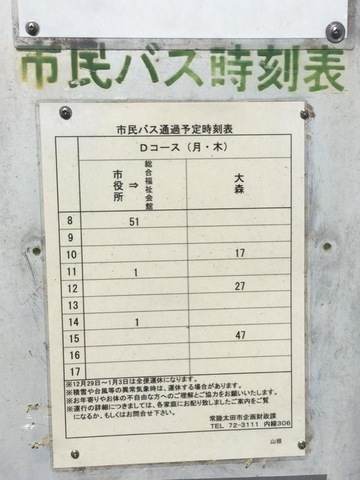 市民バス時刻表
市民バス通過予定時刻表
Dコース（月・木）
市役所 ⇒ 総合福祉会館 大森
8 51
9
10 17
11 1
12 27
13
14 1
15 47
16
17
※12月29日～1月3日は全便運休になります。
※積雪や台風等の異常気象時は、運休する場合があります。
※お年寄りやお体の不自由な方へのご理解とご協力をお願いいたします。
※運行の詳細につきましては、各家庭にお配り致しましたご案内をご覧
になるか、もしくはお問合せ下さい。
常陸太田市企画財政課
TEL 72-3111 内線306